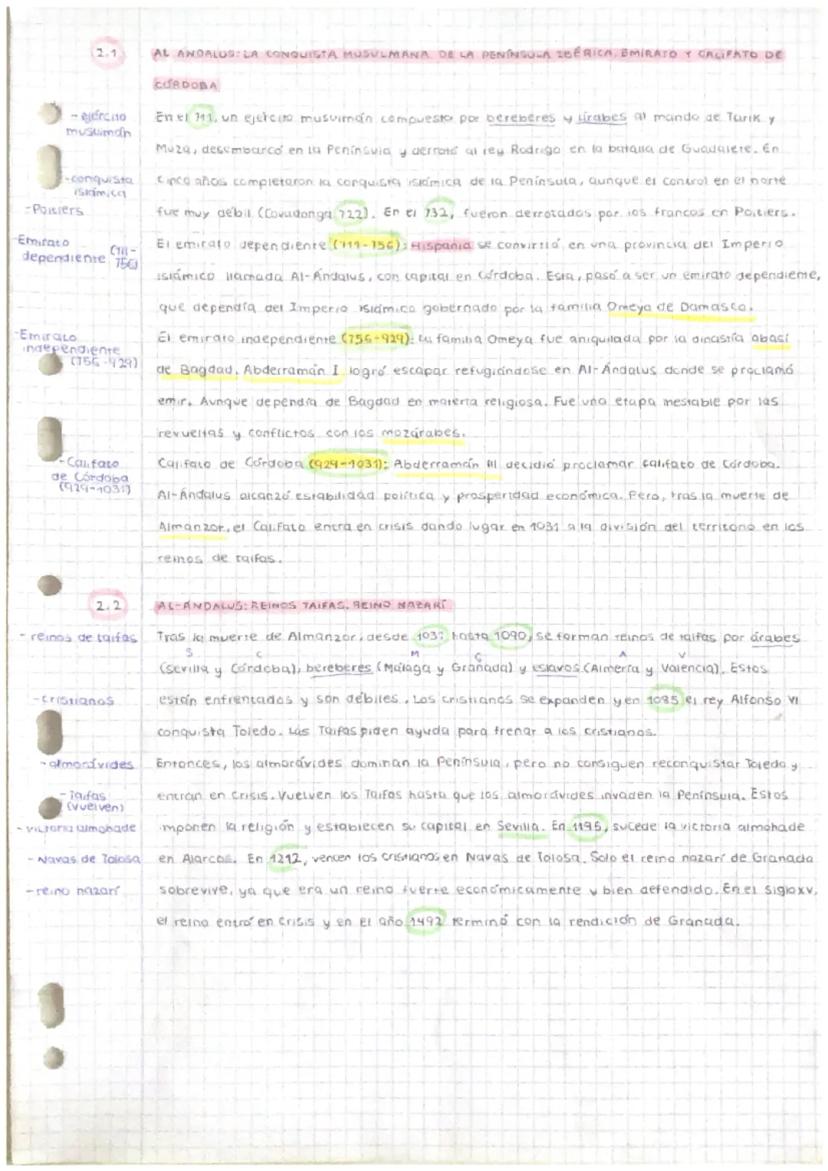 2.1 AL ANDALUS: LA CONQUISTA MUSULMANA DE LA PENÍNSULA IBÉRICA, EMIRATO Y CALIFATO DE
CÓRDOBA
- ejército En el 711, un ejército musulmán compuesto por bereberes y árabes al mando de Tarik y
musulmán
Muza, desembarcó en la Península y derrotó al rey Rodrigo en la batalla de Guadalete. En
- conquista cinco años completaron la conquista islámica de la Península, aunque el control en el norte
islámica
- Poitiers fue muy débil (Covadonga 722). En el 732, fueron derrotados por los francos en Poitiers.
- Emirato dependiente (711-756) El emirato dependiente (711-756): Hispania se convirtió en una provincia del Imperio
islámico llamada Al-Ándalus, con capital en Córdoba. Esta, pasó a ser un emirato dependiente,
que dependía del Imperio islámico gobernado por la familia Omeya de Damasco.
- Emirato independiente (756-929) El emirato independiente (756-929): La familia Omeya fue aniquilada por la dinastía abasí
de Bagdad. Abderramán I logró escapar refugiándose en Al-Ándalus donde se proclamó
emir. Aunque dependía de Bagdad en materia religiosa. Fue una etapa inestable por las
revueltas y conflictos con los mozárabes.
- Califato de Córdoba (929-1031) Califato de Córdoba (929-1031): Abderramán III decidió proclamar califato de Córdoba.
Al-Ándalus alcanzó estabilidad política y prosperidad económica. Pero, tras la muerte de
Almanzor, el Califato entra en crisis dando lugar en 1031 a la división del territorio en los
reinos de taifas.
2.2 AL-ÁNDALUS: REINOS TAIFAS. REINO NAZARÍ
- reinos de taifas Tras la muerte de Almanzor, desde 1031 hasta 1090, se forman reinos de taifas por árabes
S C M G A V
(Sevilla y Córdoba), bereberes (Málaga y Granada) y eslavos (Almería y Valencia). Estos
- cristianos están enfrentados y son débiles. Los cristianos se expanden y en 1085 el rey Alfonso VI
conquista Toledo. Las Taifas piden ayuda para frenar a los cristianos.
- almorávides Entonces, los almorávides dominan la Península, pero no consiguen reconquistar Toledo y
- Taifas (vuelven) entran en crisis. Vuelven los Taifas hasta que los almorávides invaden la Península. Estos
- victoria almohade imponen la religión y establecen su capital en Sevilla. En 1195, sucede la victoria almohade
- Navas de Tolosa en Alarcos. En 1212, vencen los cristianos en Navas de Tolosa. Solo el reino nazarí de Granada
- reino nazarí sobrevive, ya que era un reino fuerte económicamente y bien defendido. En el siglo XV,
el reino entró en crisis y en el año 1492 terminó con la rendición de Granada.